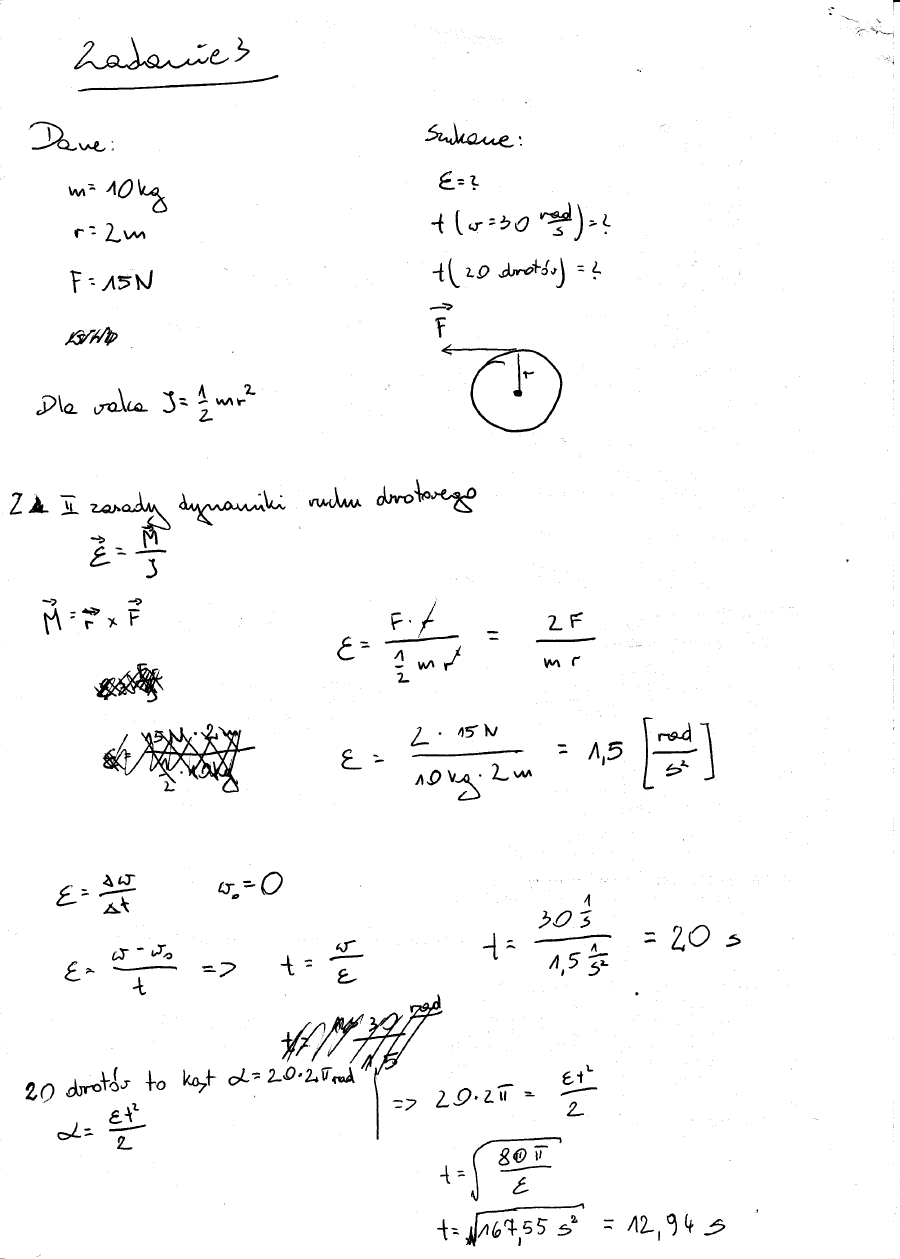 Zadanie 3
Dane:
m = 10 kg
r = 2 m
F = 15 N
Szukane:
ε = ?
t (ω = 30 rad/s) = ?
t (20 obrotów) = ?
F
r
Dla walca J = 1/2 mr²
Z II zasady dynamiki ruchu obrotowego
ε = M/J
M = r × F
ε = F · r / (1/2 m r²) = 2F / (m r)
ε = 2 · 15 N / (10 kg · 2 m) = 1,5 [rad/s²]
ε = Δω/Δt    ω₀ = 0
ε = (ω - ω₀)/t => t = ω/ε
t = 30 1/s / (1,5 1/s²) = 20 s
20 obrotów to kąt α = 20 · 2π rad
α = εt²/2
=> 20 · 2π = εt²/2
t = √(80π/ε)
t = √(167,55 s²) = 12,94 s